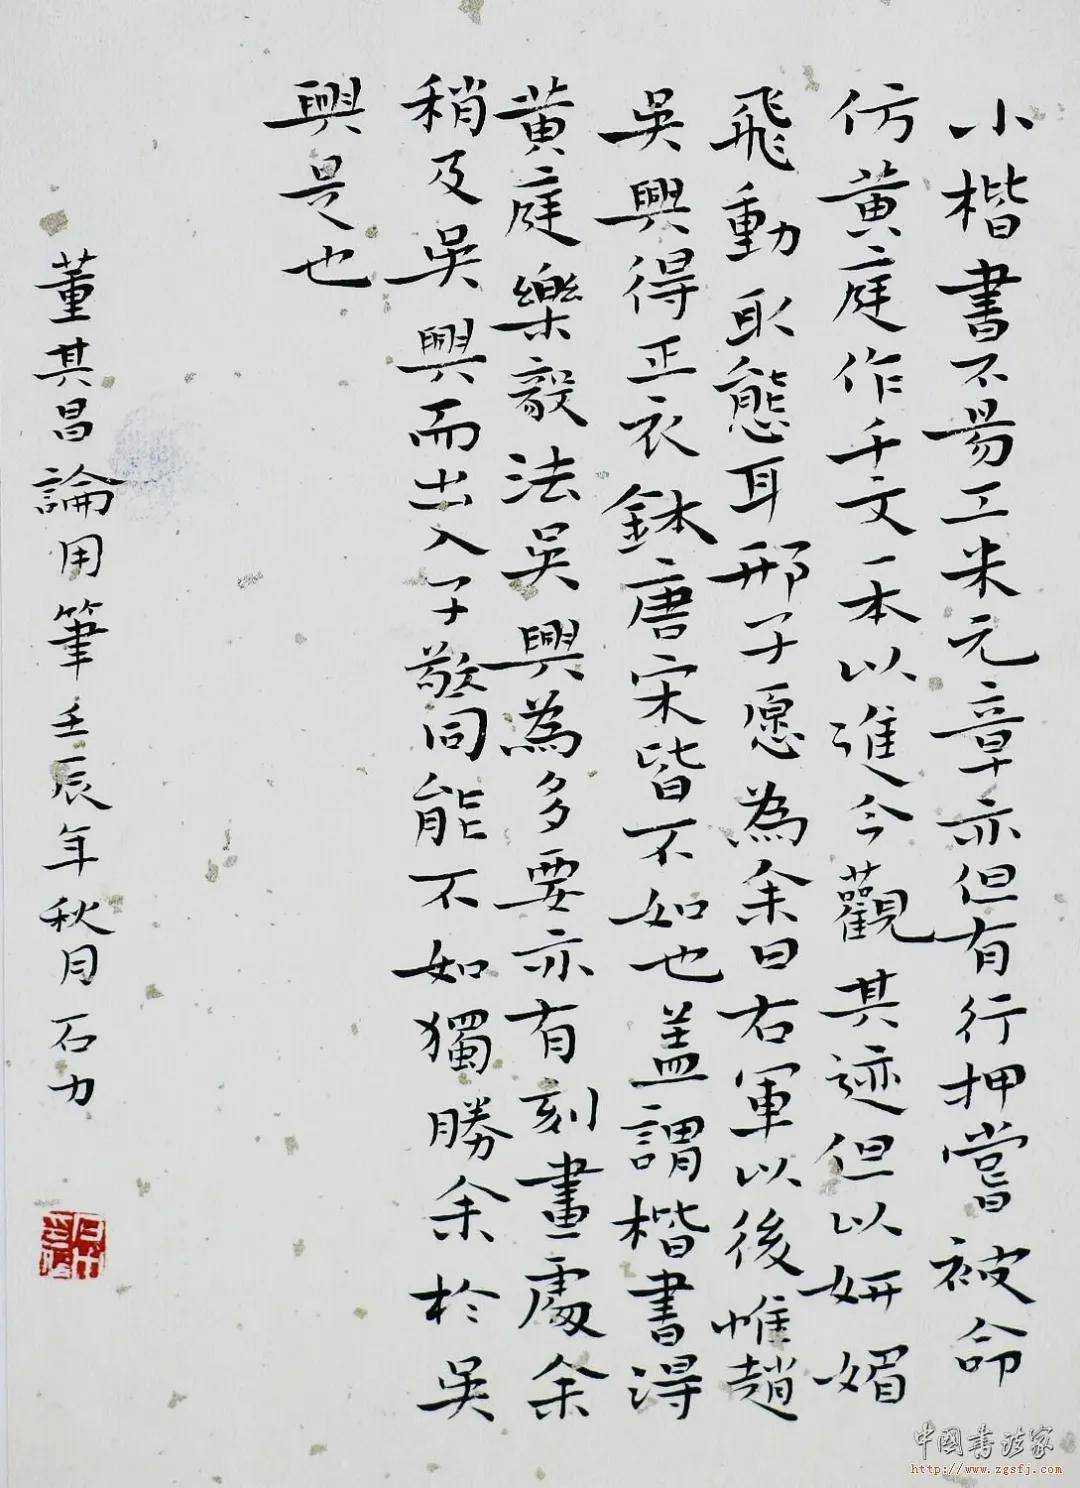 小楷書不易工米元章亦但有行押嘗被命
仿黃庭作千文一本以進今觀其迹但以妍媚
飛動取態耳邢子愿為余曰右軍以後惟趙
吳興得正衣鉢唐宋皆不如也盖謂楷書得
黃庭樂毅法吳興為多要亦有刻畫處余
稍及吳興而出入子敬同能不如獨勝余於吳
興是也
董其昌論用筆壬辰年秋月石力
中國書法家
http://www.zgsfj.com